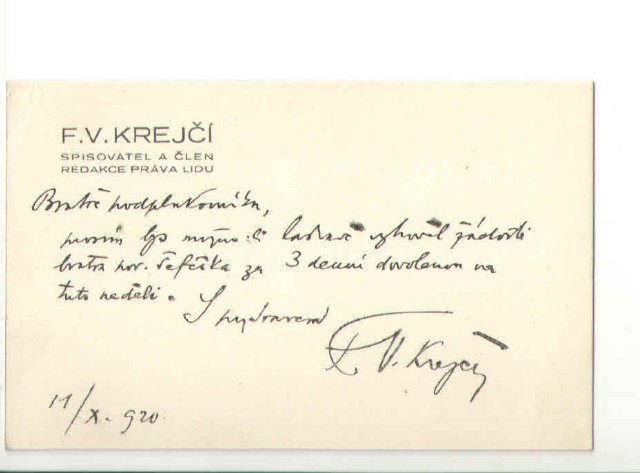 F.V. KREJČÍ
SPISOVATEL A ČLEN
REDAKCE PRÁVA LIDU
Bratře podplukovníku,
prosím by možno-li laskavě vyhověl žádosti
bratra por. Šefčíka za 3 denní dovolenou na
tuto neděli.
S pozdravem
F. V. Krejčí
11/X. 920.